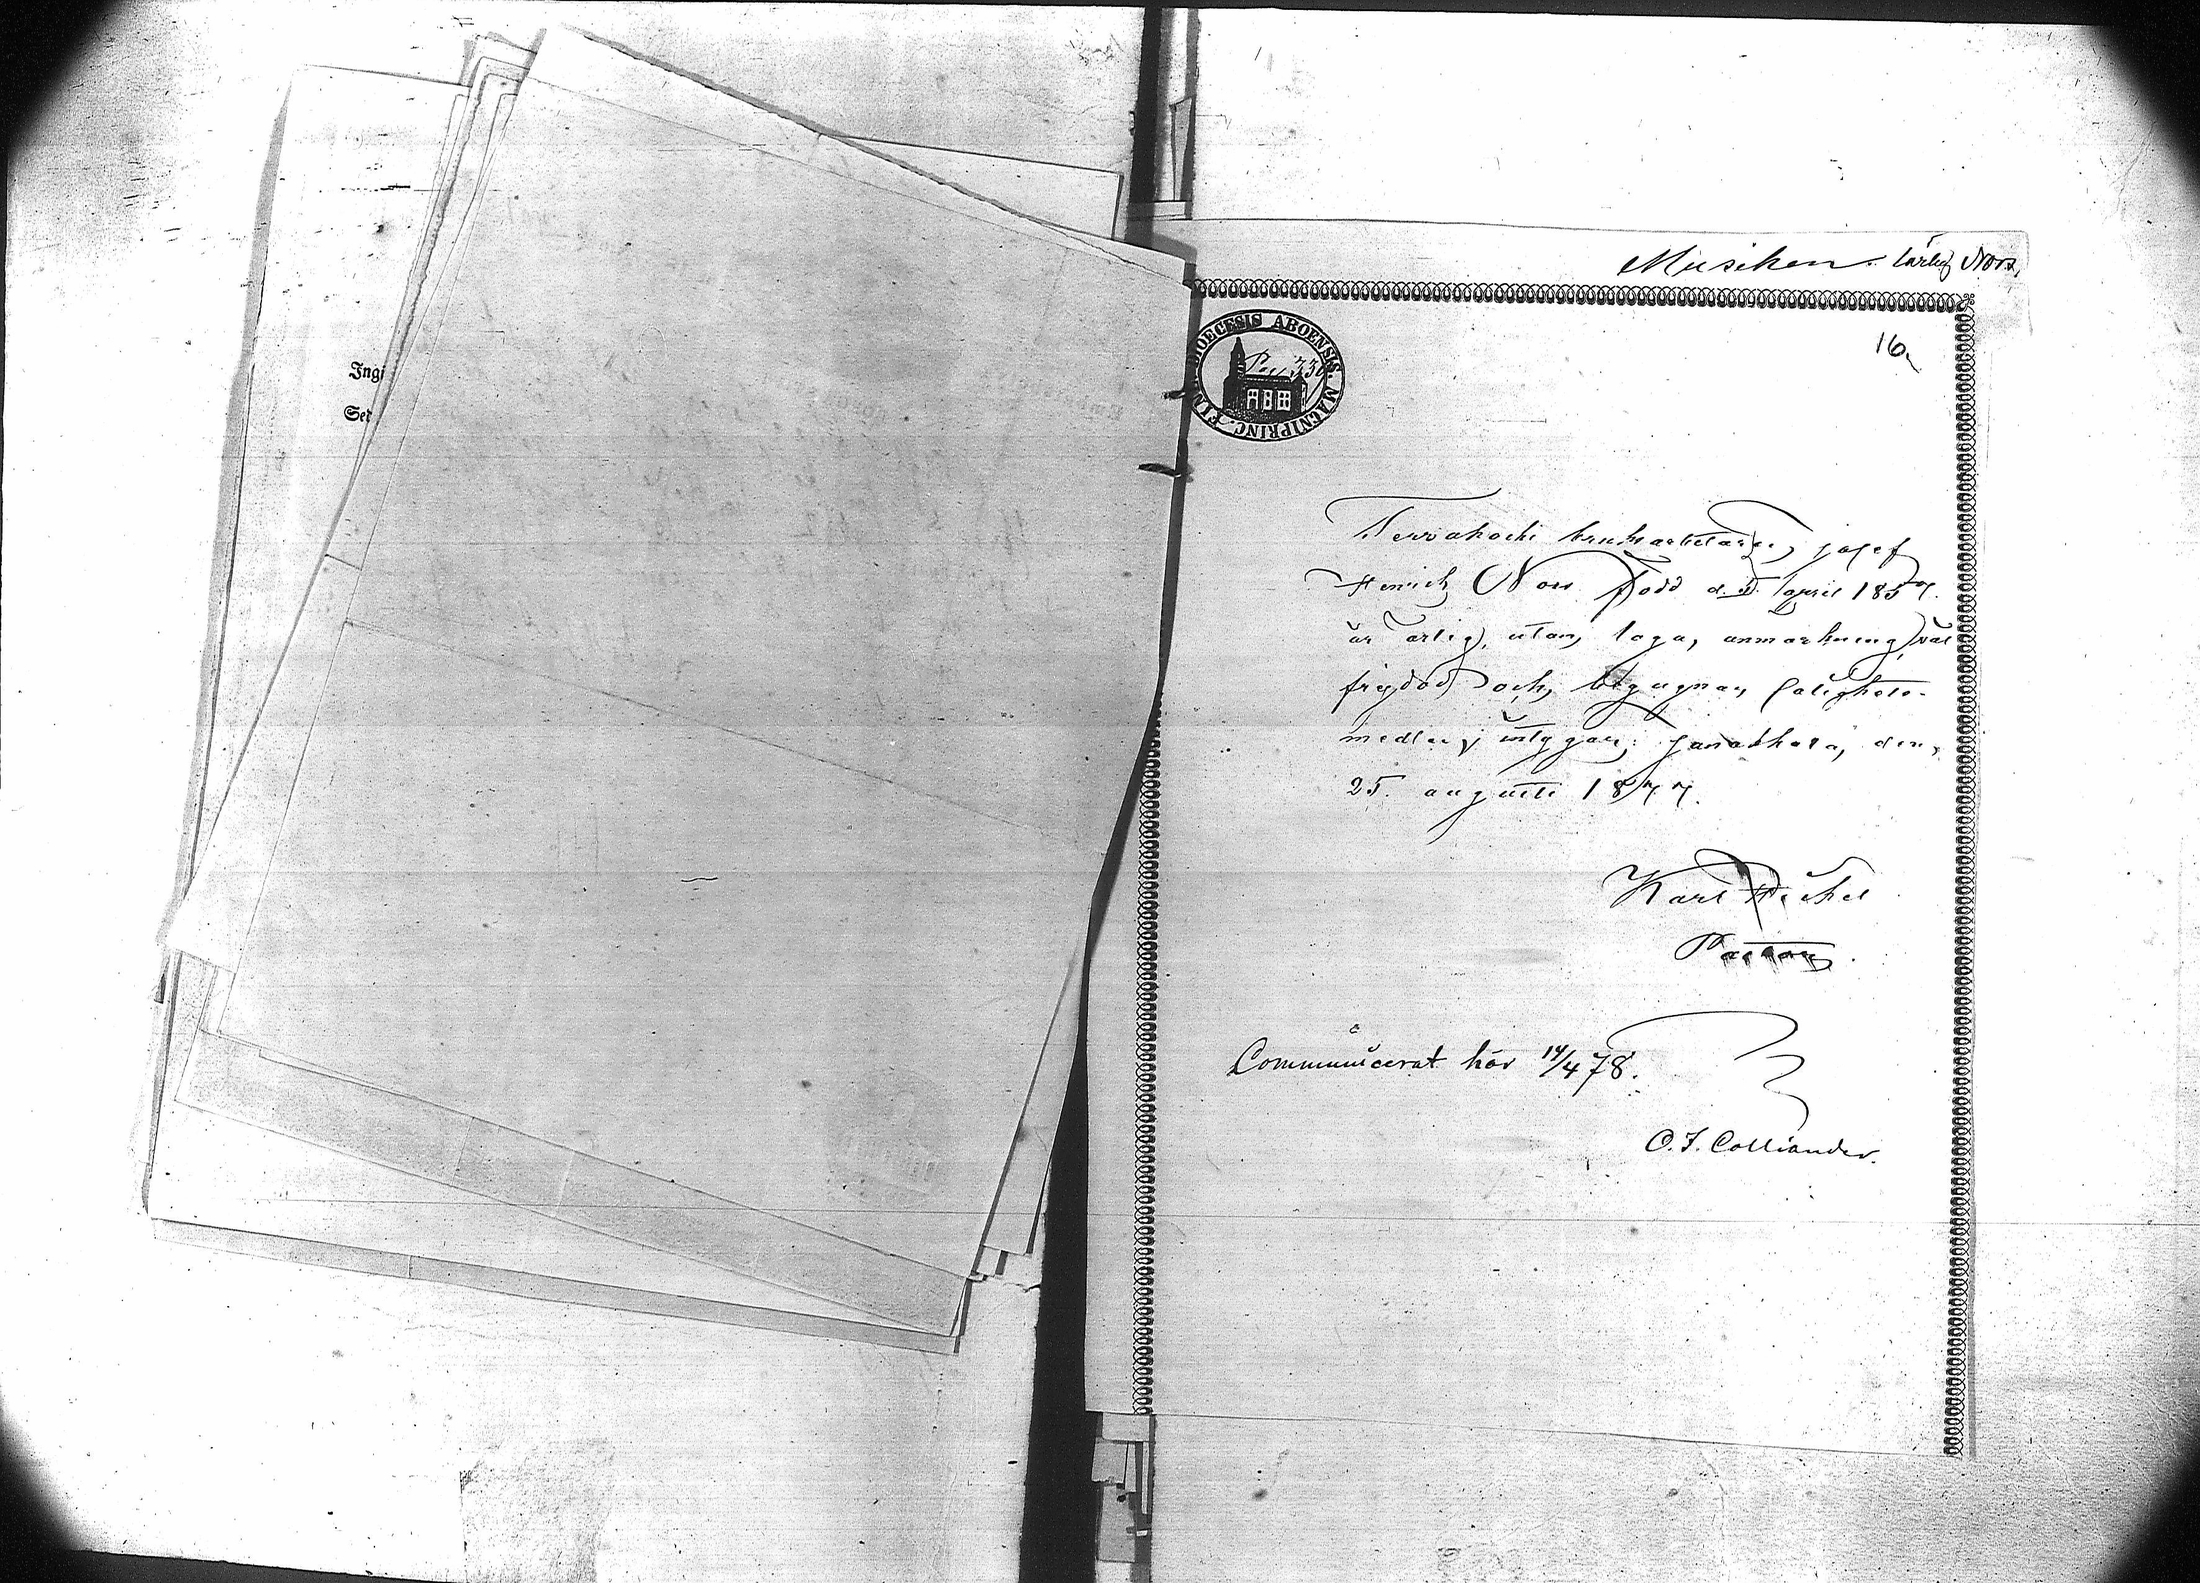 Musiken lärling Nors.
16.
DIOECESIS ABOENSIS. MAGNI PRINC. FINL.
Ingi
Ser
Tervakoski bruksarbetaren, josef
Henrik Nors född d. 5. april 1857.
är ärlig, utan, laga, anmärkning, väl
frejdad och, begagnar, salighets-
medlen, intygar; Janakkala, den,
25. augusti 1877.
Karl Heikel
Pastor.
Communicerat här 14/4 78.
O. I. Colliander.